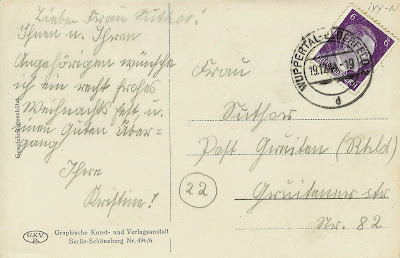 Liebe Frau Suthor!
Ihnen u. Ihren
Angehörigen wünsche
ich ein recht frohes
Weihnachtsfest u.
einen Guten Über-
gang!
Ihre
Kristine!
Gesetzlich geschützt
Graphische Kunst- und Verlagsanstalt
Berlin-Schöneberg Nr. 496/6
WUPPERTAL-ELBERFELD
19.12.
-19
d
6
6
Frau
Suthor
Post Gruiten (Rhld)
22
Gruitener str
Nr. 82